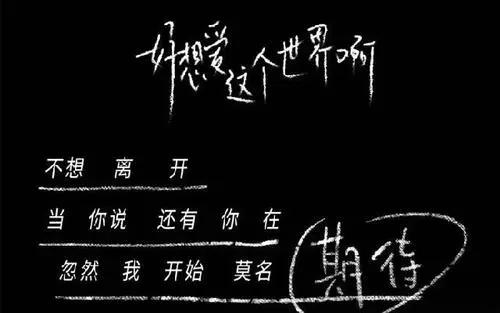 好想爱这个世界啊
不想 离 开
当 你说 还有 你 在
忽然 我 开始 莫名 期待